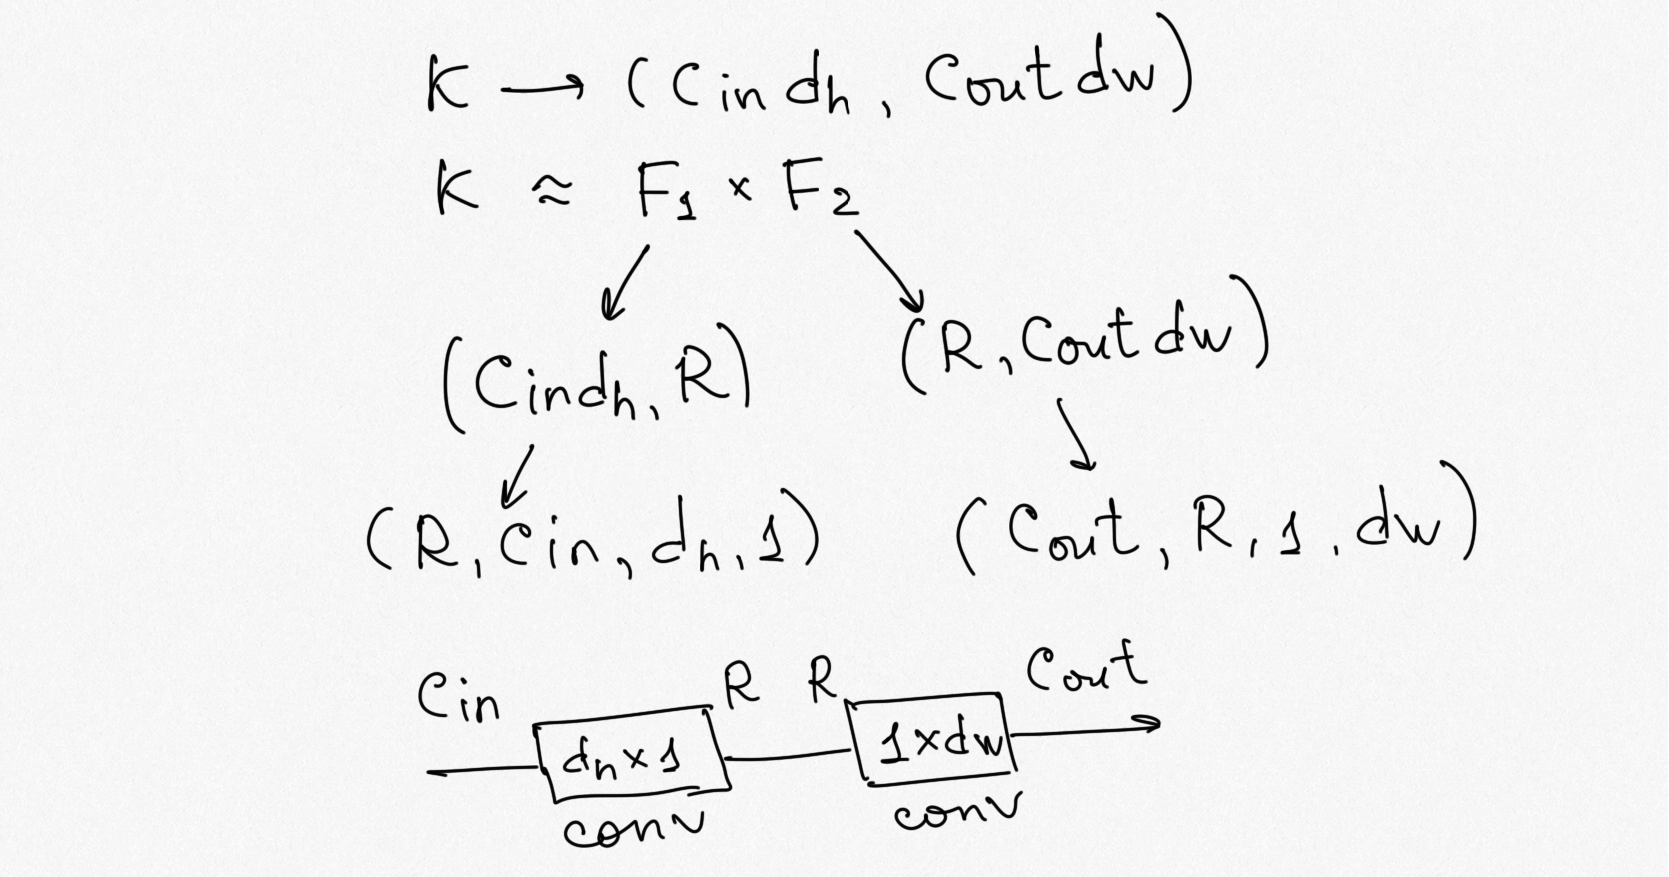 K → (Cin dh, Cout dw)
K ≈ F1 × F2
(Cin dh, R) (R, Cout dw)
(R, Cin, dh, 1) (Cout, R, 1, dw)
Cin R R Cout
dh × 1 1 × dw
conv conv